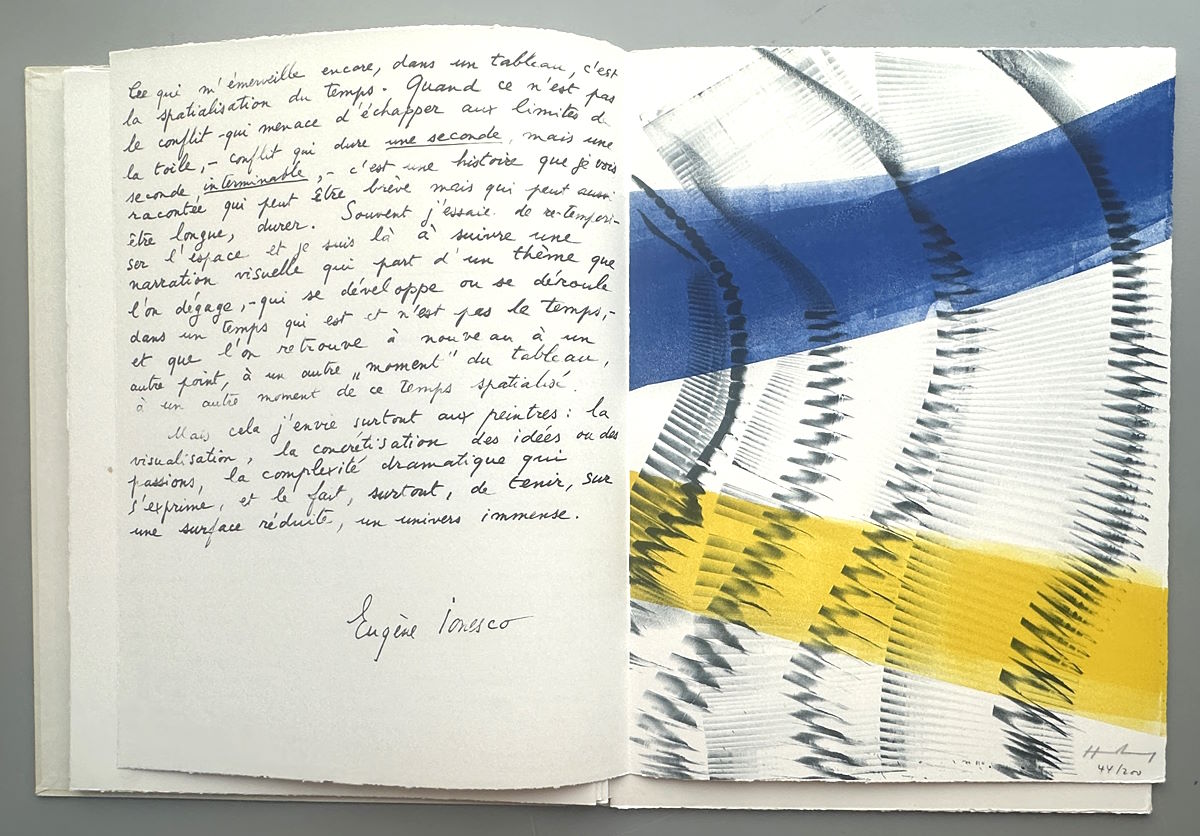 Ce qui m'émerveille encore, dans un tableau, c'est
la spatialisation du temps. Quand ce n'est pas
le conflit - qui menace d'échapper aux limites de
la toile, - conflit qui dure une seconde, mais une
seconde interminable, - c'est une histoire que je vois
racontée qui peut être brève mais qui peut aussi
être longue, durer. Souvent j'essaie de re-tempori-
ser l'espace et je suis là à suivre une
narration visuelle qui part d'un thème que
l'on dégage, - qui se développe ou se déroule
dans un temps qui est et n'est pas le temps, -
et que l'on retrouve à nouveau à un
autre point, à un autre „moment" du tableau,
à un autre moment de ce temps spatialisé.
Mais cela j'envie surtout aux peintres : la
visualisation, la concrétisation des idées ou des
passions, la complexité dramatique qui
s'exprime, et le fait, surtout, de tenir, sur
une surface réduite, un univers immense.
Eugène Ionesco
44/200